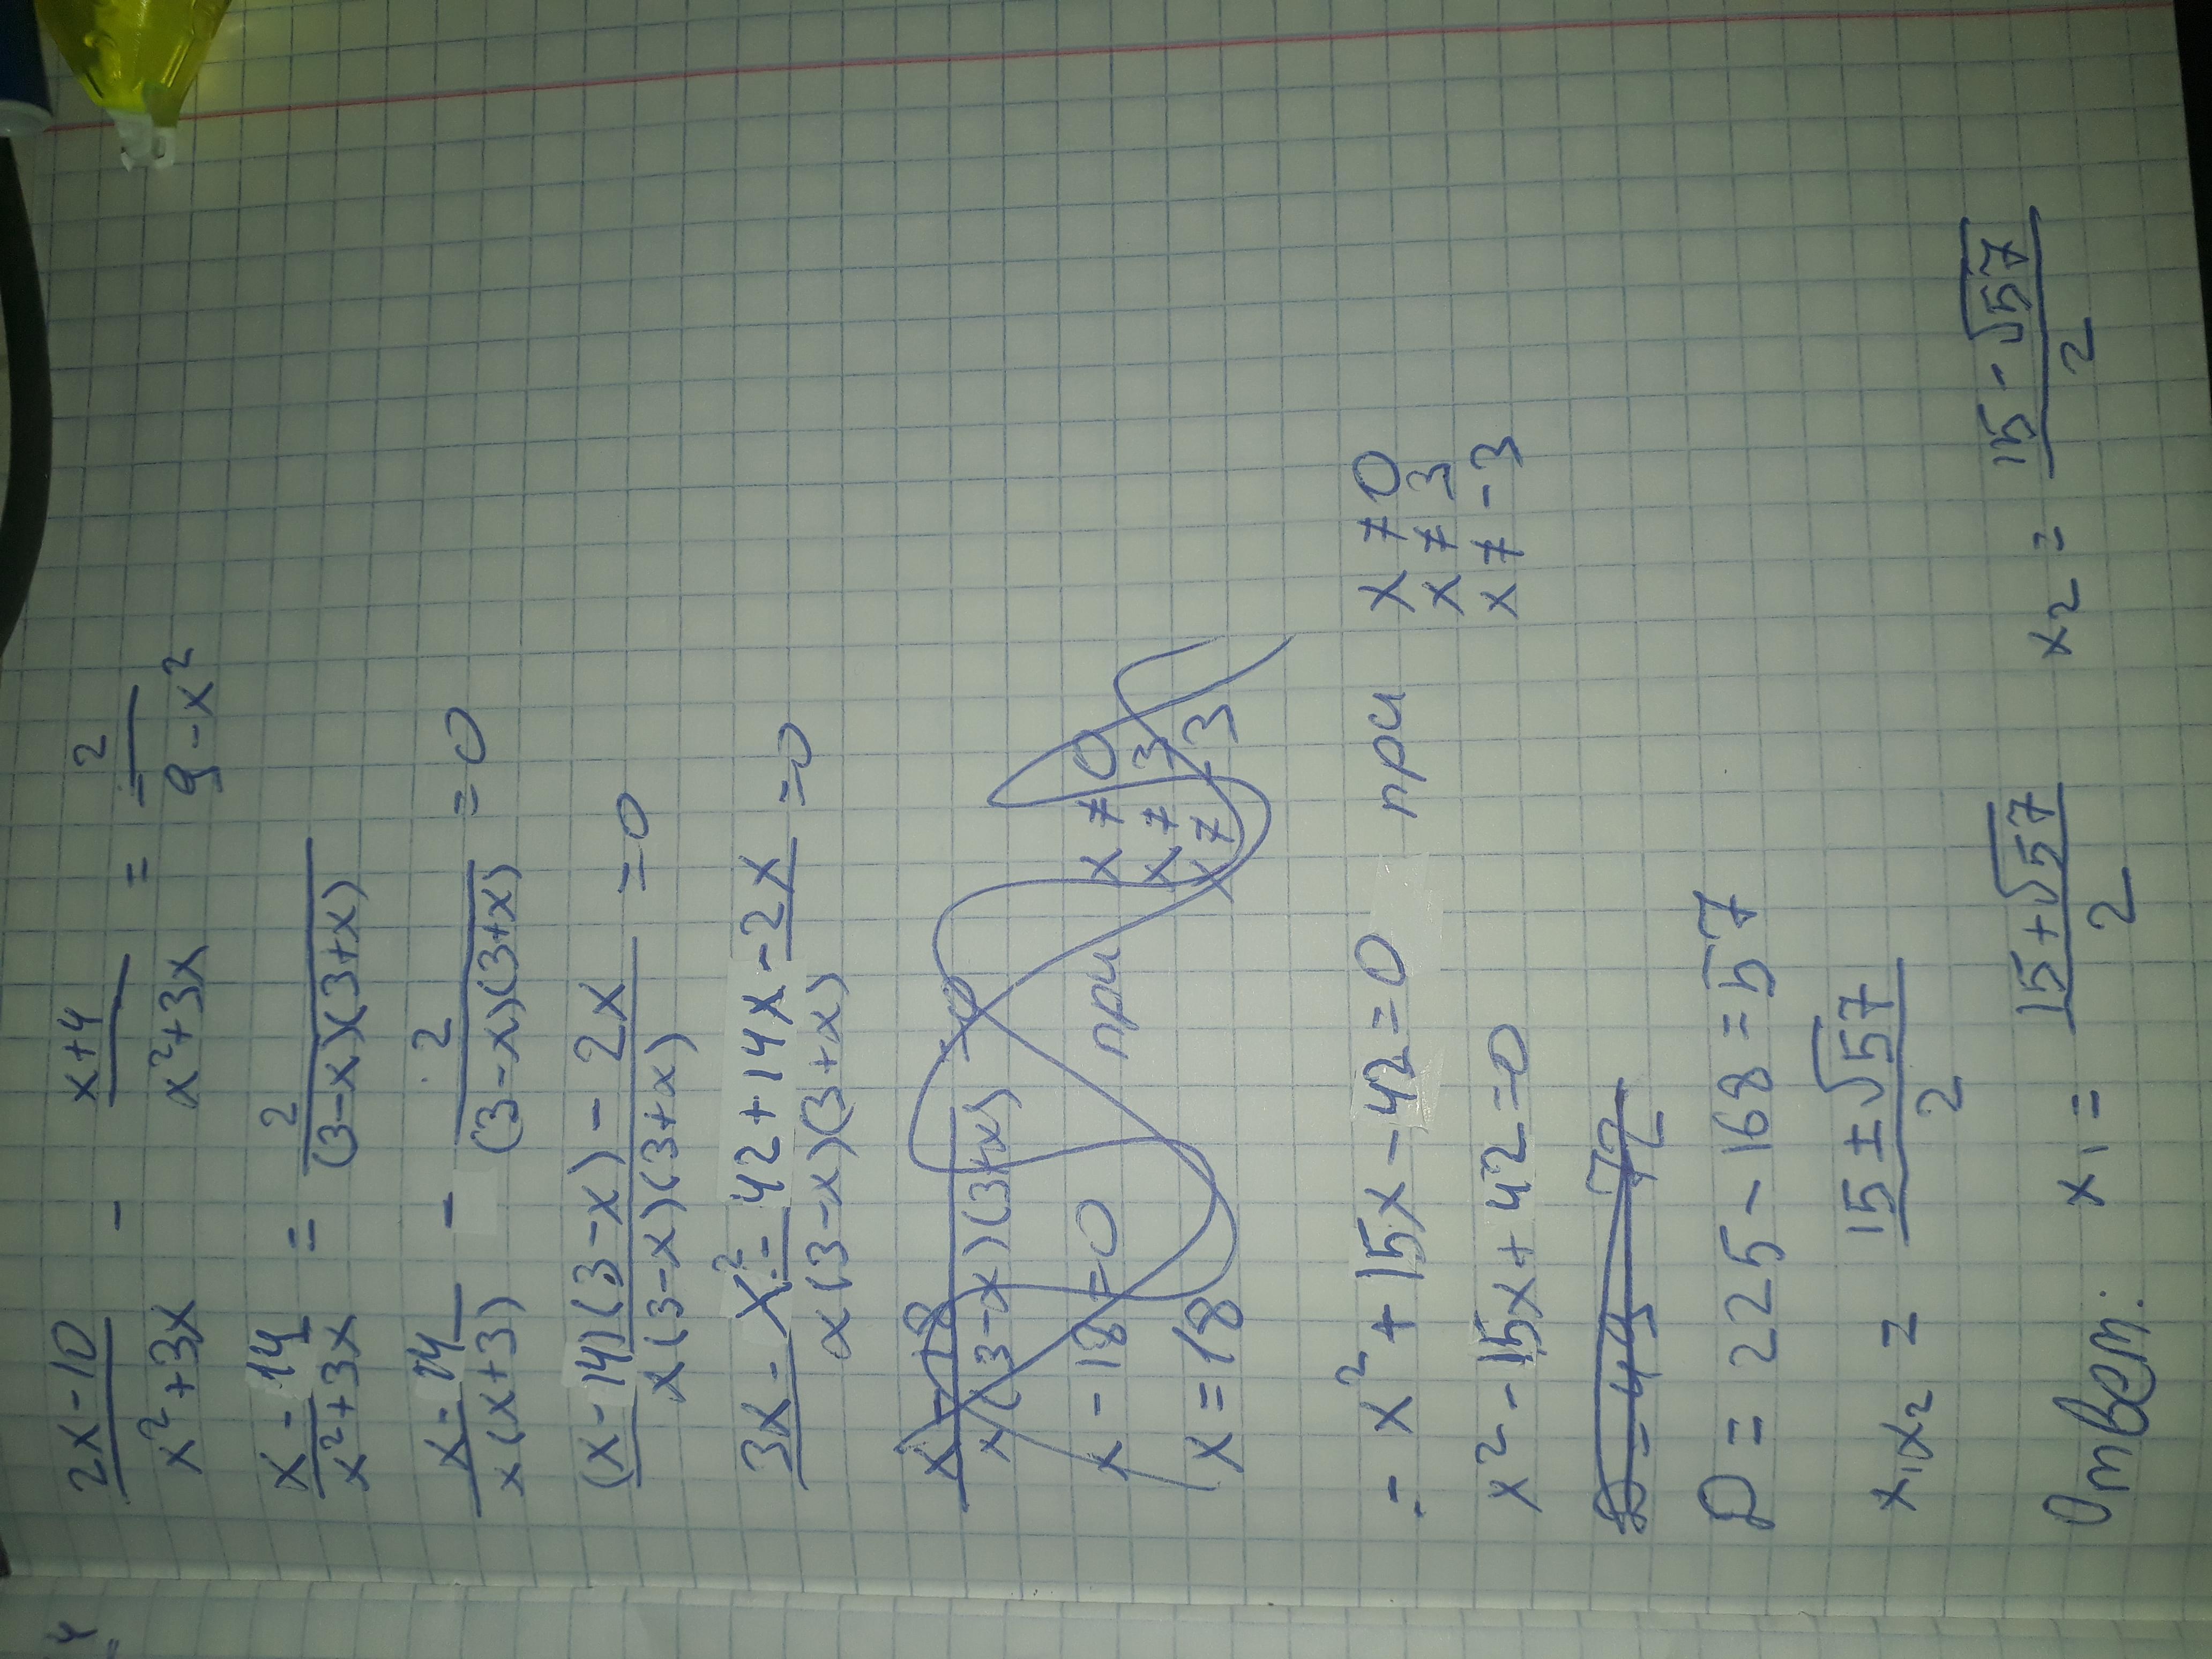 (2x-10)/(x²+3x) - (x+4)/(x²+3x) = 2/(9-x²)
(x-14)/(x²+3x) = 2/((3-x)(3+x))
(x-14)/(x(x+3)) - 2/((3-x)(3+x)) = 0
((x-14)(3-x)-2x)/(x(3-x)(3+x)) = 0
(3x-x²-42+14x-2x)/(x(3-x)(3+x)) = 0
(x-18)/(x(3-x)(3+x)) = 0
x-18=0 при x≠0
x≠3
x=18 x≠-3
-x²+15x-42=0 при x≠0
x≠3
x²-15x+42=0 x≠-3
D=225-168=57
x₁x₂ = (15±√57)/2
Ответ: x₁=(15+√57)/2 x₂=(15-√57)/2